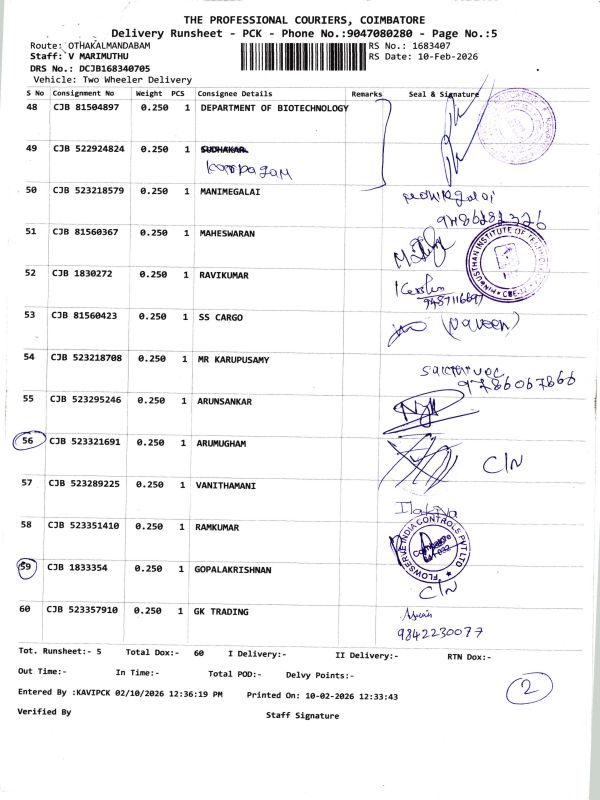 THE PROFESSIONAL COURIERS, COIMBATORE
Delivery Runsheet - PCK - Phone No.:9047080280 - Page No.:5
Route: OTHAKALMANDABAM RS No.: 1683407
Staff: V MARIMUTHU RS Date: 10-Feb-2026
DRS No.: DCJB168340705
Vehicle: Two Wheeler Delivery
S No Consignment No Weight PCS Consignee Details Remarks Seal & Signature
48 CJB 81504897 0.250 1 DEPARTMENT OF BIOTECHNOLOGY
49 CJB 522924824 0.250 1 SUDHAKAR
Karpagam
50 CJB 523218579 0.250 1 MANIMEGALAI
51 CJB 81560367 0.250 1 MAHESWARAN
HINDUSTHAN INSTITUTE OF
52 CJB 1830272 0.250 1 RAVIKUMAR
53 CJB 81560423 0.250 1 SS CARGO
(Naveen)
54 CJB 523218708 0.250 1 MR KARUPUSAMY
55 CJB 523295246 0.250 1 ARUNSANKAR
56 CJB 523321691 0.250 1 ARUMUGHAM
C/N
57 CJB 523289225 0.250 1 VANITHAMANI
58 CJB 523351410 0.250 1 RAMKUMAR
FLOWSERVE INDIA CONTROLS PVT LTD
Coimbatore
59 CJB 1833354 0.250 1 GOPALAKRISHNAN
C/N
60 CJB 523357910 0.250 1 GK TRADING
9842230077
Tot. Runsheet:- 5 Total Dox:- 60 I Delivery:- II Delivery:- RTN Dox:-
Out Time:- In Time:- Total POD:- Delvy Points:-
Entered By :KAVIPCK 02/10/2026 12:36:19 PM Printed On: 10-02-2026 12:33:43
2
Verified By Staff Signature